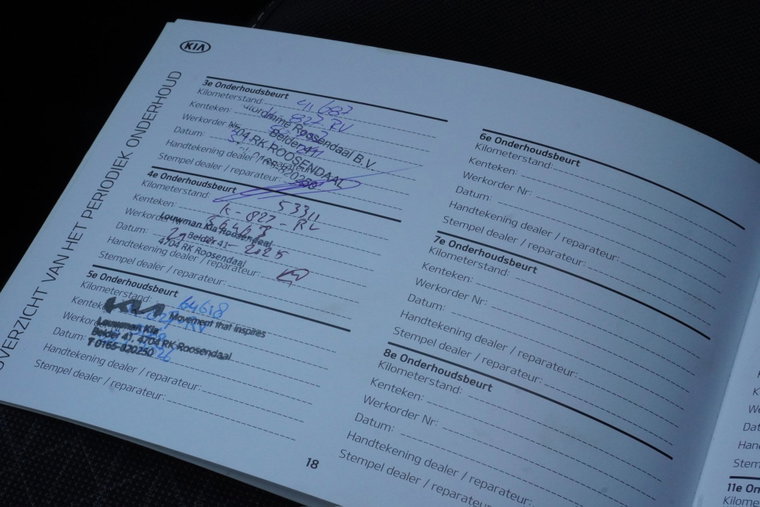 KIA
OVERZICHT VAN HET PERIODIEK ONDERHOUD
3e Onderhoudsbeurt
Kilometerstand: 41.683
Kenteken:
Werkorder Nr:
Roosendaal B.V.
Datum:
Belder 41
4704 RK ROOSENDAAL
Handtekening dealer / reparateur:
Stempel dealer / reparateur:
4e Onderhoudsbeurt
Kilometerstand: 53311
Kenteken: K-827-RV
Werkorder
Louwman Kia Roosendaal
Datum:
Belder 41
4704 RK Roosendaal
Handtekening dealer / reparateur:
Stempel dealer / reparateur:
5e Onderhoudsbeurt
Kilometerstand: 64618
KIA Movement that inspires
Kenteken
Louwman Kia
Belder 41, 4704 RK Roosendaal
T 0165-820250
Datum:
Handtekening dealer / reparateur:
Stempel dealer / reparateur:
18
6e Onderhoudsbeurt
Kilometerstand:
Kenteken:
Werkorder Nr:
Datum:
Handtekening dealer / reparateur:
Stempel dealer / reparateur:
7e Onderhoudsbeurt
Kilometerstand:
Kenteken:
Werkorder Nr:
Datum:
Handtekening dealer / reparateur:
Stempel dealer / reparateur:
8e Onderhoudsbeurt
Kilometerstand:
Kenteken:
Werkorder Nr:
Datum:
Handtekening dealer / reparateur:
Stempel dealer / reparateur:
11e On